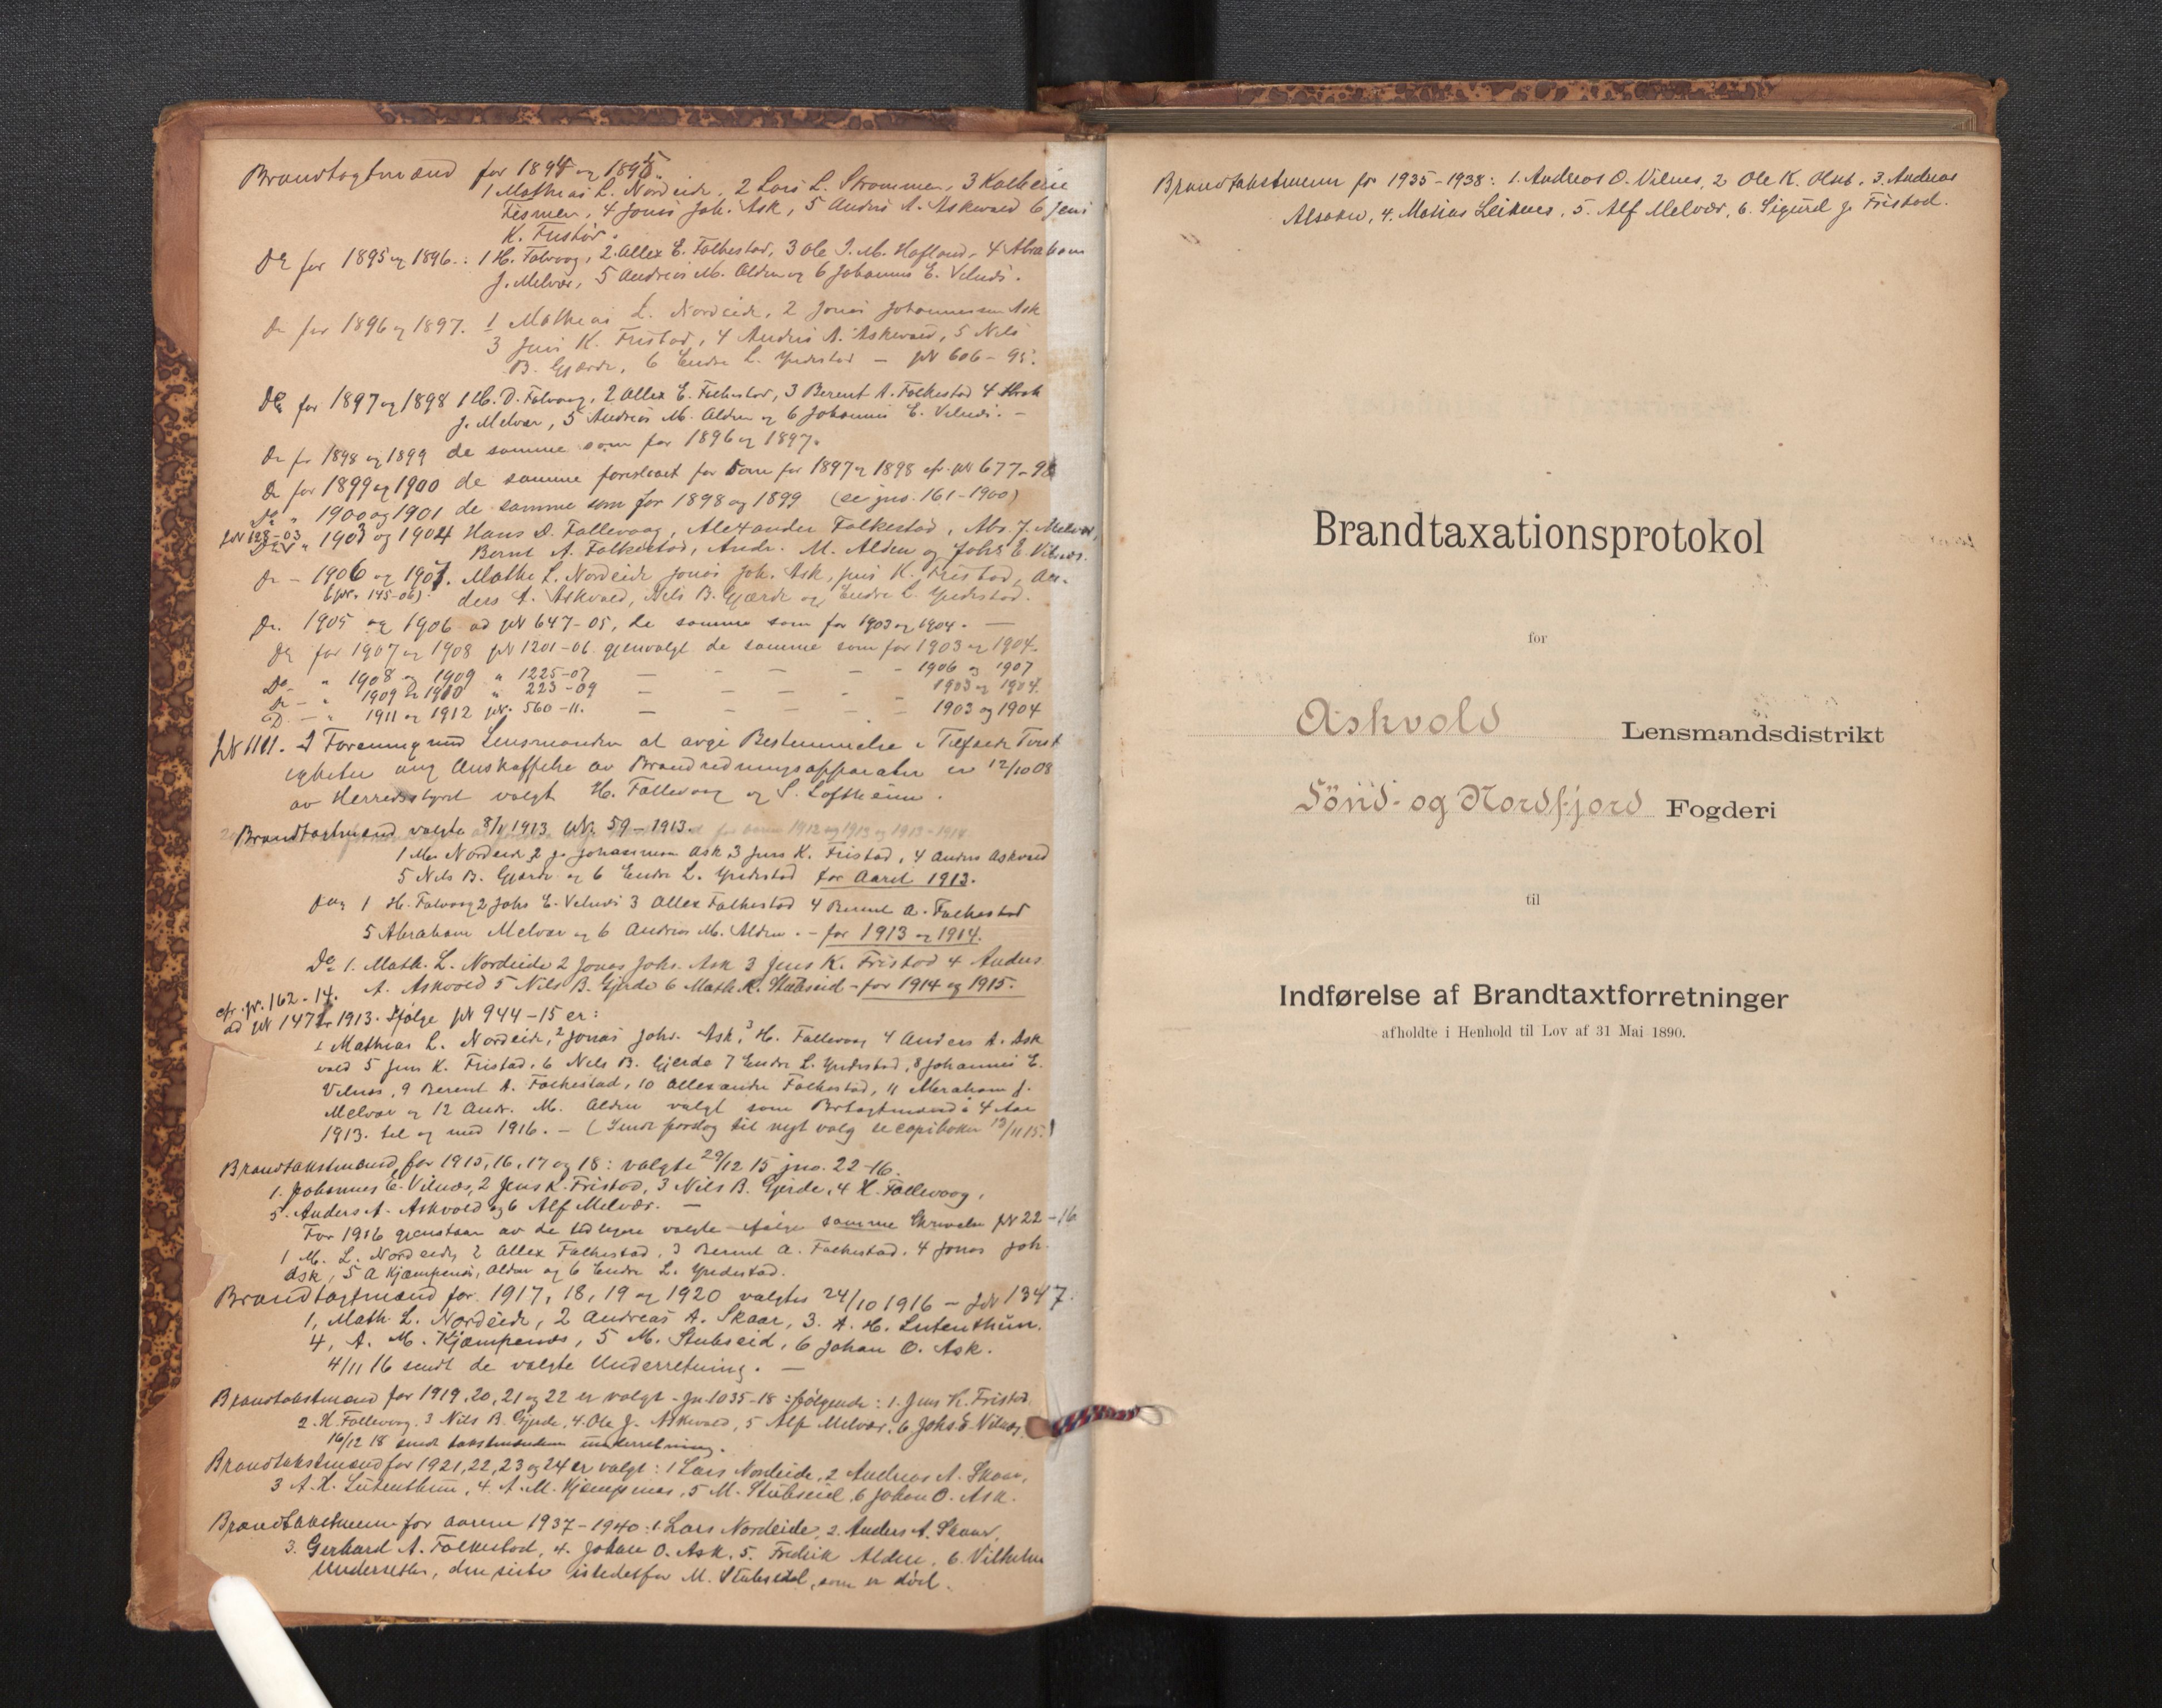 Brandtagtmænd for 1894 og 1895.
1 Mathias L. Nordeide, 2 Lars L. Strømmen, 3 Kathrin
4 Jonas Joh. Ask, 5 Anders A. Askvold 6 Jens
K. Fristad.
Do for 1895 og 1896.: 1 H. Folevaag, 2. Allex E. Folkestad, 3 Ole J. M. Hofland, 4 Abraham
J. Melvær, 5 Andreas M. Alden og 6 Johannes E. Vilnæs.
Do for 1896 og 1897. 1 Mathias L. Nordeide, 2 Jonas Johannessen Ask
3 Jens K. Fristad, 4 Anders A. Askvold, 5 Nils
B. Gjærde, 6 Endre L. Yndestad – JN 606–95.
Do for 1897 og 1898 1 H. D. Folevaag, 2 Allex E. Folkestad, 3 Berent A. Folkestad 4 Abrah
J. Melvær, 5 Andreas M. Alden og 6 Johannes E. Vilnæs. –
Do for 1898 og 1899 de samme som for 1896 og 1897.
Do for 1899 og 1900 de samme foreslaaet for som for 1897 og 1898 cfr. JN 677–98
Do " 1900 og 1901 de samme som for 1898 og 1899 (se jno. 161–1900)
JN 128–03
Do " 1903 og 1904 Hans D. Follevaag, Alexander Folkestad, Abr. J. Melvær,
Bernt A. Folkestad, Andr. M. Alden og Johs E. Vilnæs.
Do – 1906 og 1907. Mathe L. Nordeide Jonas Joh. Ask, Jens K. Fristad, An-
(jno. 145–06) ders A. Askvold, Nils B. Gjærde og Endre L. Yndestad.
Do. 1905 og 1906 ad JN 647–05, de samme som for 1903 og 1904. –
Do for 1907 og 1908 JN 1201–06 gjenvalgt de samme som for 1903 og 1904.
Do – " 1908 og 1909 " 1225–07 – – – – 1906 og 1907
Do – " 1909 og 1910 " 223–09 – – – – 1903 og 1904.
D. – " 1911 og 1912 JN: 560–11. – – – – 1903 og 1904
JN 1111. I Forening med Lensmanden at avgi Bestemmelse i Tilfælde Tvist
igheter ang Anskaffelse av Brandredningsapparater er 12/10 08
av Herredsstyret valgt H. Follevaag og S. Loftheim.
Brandtagtmænd valgte 8/1 1913 JN. 59–1913.
1 Mas Nordeide 2 Jo Johannesen Ask 3 Jens K. Fristad, 4 Anders Askvold
5 Nils B. Gjærde og 6 Endre L. Yndestad for Aaret 1913.
1 H. Folevaag 2 Johs E. Vilnæs 3 Allex Folkestad 4 Bernt A. Folkestad
5 Abraham Melvær og 6 Andreas M. Alden. – for 1913 og 1914.
Do 1. Math. L. Nordeide 2 Jonas Johs. Ask 3 Jens K. Fristad 4 Anders
A. Askvold 5 Nils B. Gjerde 6 Math. K. Stubseid – for 1914 og 1915.
cfr. jr. 162–14.
ad JN 1472 1913. Ifølge JN 944–15 er:
1 Mathias L. Nordeide, 2 Jonas Johs. Ask, 3 H. Follevaag 4 Anders A. Ask
vold 5 Jens K. Fristad, 6 Nils B. Gjerde 7 Endre L. Yndestad, 8 Johannes E.
Vilnæs, 9 Berent A. Folkestad, 10 Allexander Folkestad, 11 Abraham J.
Melvær og 12 Andr. M. Alden valgt som Brtagtmænd i 4 Aar
1913. til og med 1916. – (Sendt forslag til nyt valg se copiboken 13/11 15.)
Brandtakstmænd for 1915, 16, 17 og 18: valgte 29/12 15 jno. 22–16.
1. Johannes E. Vilnæs, 2 Jens K. Fristad, 3 Nils B. Gjerde, 4 H. Follevaag,
5. Anders A. Askvold og 6 Alf Melvær. –
For 1916 gjenstaar av de tidligere valgte ifølge samme Skrivelse JN 22–16
1 M. L. Nordeide, 2 Allex Folkestad, 3 Bernt A. Folkestad, 4 Jonas Joh.
Ask, 5 A Kjæmpenes, Alden og 6 Endre L. Yndestad.
Brandtagtmænd for 1917, 18, 19 og 1920 valgtes 24/10 1916 – JN 1347.
1, Math. L. Nordeide, 2 Andreas A. Skaar, 3. A. H. Lutenthun.
4, A. M. Kjæmpenes, 5 M. Stubseid, 6 Johan O. Ask.
4/11 16 sendt de valgte Underretning. –
Brandtakstmænd for 1919, 20, 21 og 22 er valgt – Jn. 1035–18: følgende: 1. Jens K. Fristad
2. H. Follevaag. 3 Nils B. Gjerde, 4. Ole J. Askvold, 5 Alf Melvær, 6 Johs. E. Vilnæs.
16/12 18 sendt takstmændene underretning.
Brandtakstmænd for 1921, 22, 23 og 24 er valgt: 1 Lars Nordeide, 2 Andreas A. Skaar,
3 A. H. Lutenthun, 4. A. M. Kjæmpenes, 5 M. Stubseid, 6 Johan O. Ask.
Brandtakstmenn for aarene 1937–1940: 1. Lars Nordeide, 2. Anders A. Skaar,
3. Gerhard A. Folkestad, 4. Johan O. Ask, 5. Fredrik Alden, 6. Vilhelm
Undersether, den siste istedetfor M. Stubseid, som er död.
Brandtakstmenn for 1935–1938: 1. Andreas O. Vilnes, 2 Ole K. 3. Andreas
4. Matias Leiknes, 5. Alf Melvær, 6. Sigurd J. Fristad.
Brandtaxationsprotokol
for
Askvold Lensmandsdistrikt
Sönd- og Nordfjord Fogderi
til
Indførelse af Brandtaxtforretninger
afholdte i Henhold til Lov af 31 Mai 1890.